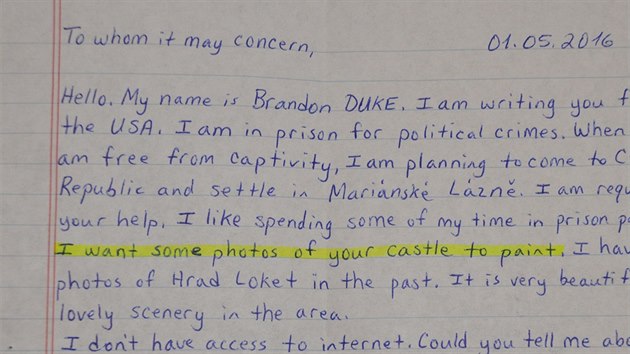 To whom it may concern,
01.05.2016
Hello. My name is Brandon DUKE. I am writing you f
the USA. I am in prison for political crimes. When
am free from captivity, I am planning to come to C
Republic and settle in Mariánské Lázně. I am requ
your help. I like spending some of my time in prison p
I want some photos of your castle to paint. I hav
photos of Hrad Loket in the past. It is very beautif
lovely scenery in the area.
I don't have access to internet. Could you tell me abo